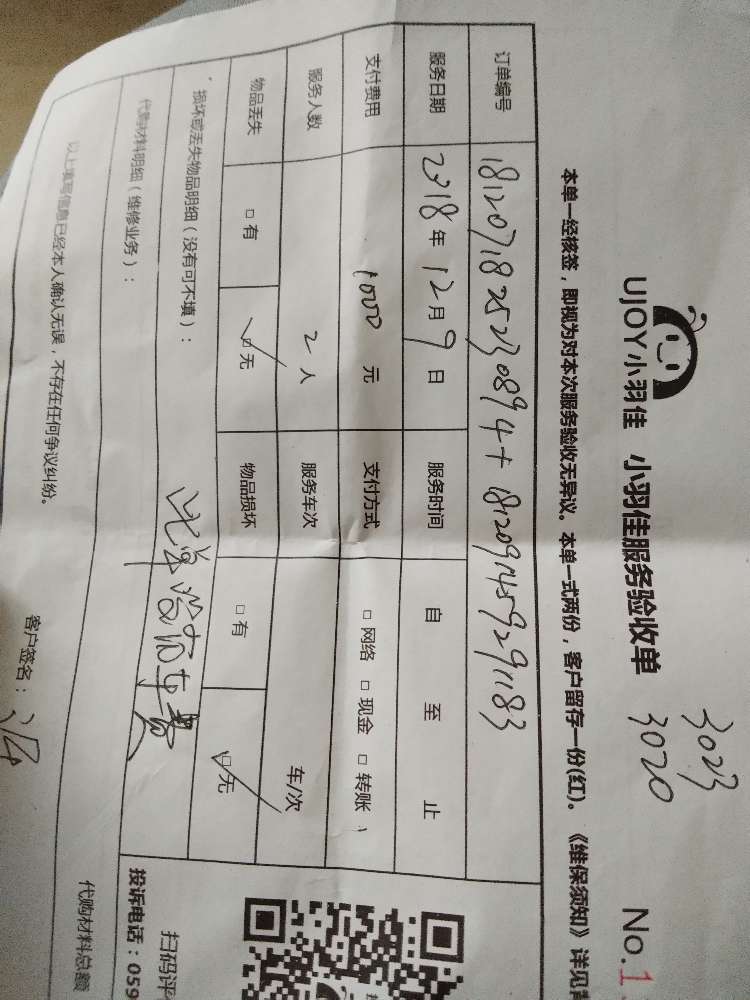 3023
3020
No.1
UJOY小羽佳 小羽佳服务验收单
本单一经核签，即视为对本次服务验收无异议。本单一式两份，客户留存一份(红)。《维保须知》详见背
订单编号 1812071825230894+1812091459291183
服务日期 2018年12月9日 服务时间 自 至 止
支付费用 1000元 支付方式 □网络 □现金 □转账
服务人数 2人 服务车次 车/次
物品丢失 □有 ☑无 物品损坏 □有 ☑无
损坏或丢失物品明细（没有可不填）：
代购材料明细（维修业务）：
以上填写信息已经本人确认无误，不存在任何争议纠纷。
客户签名：
代购材料总额
扫码评
投诉电话：059